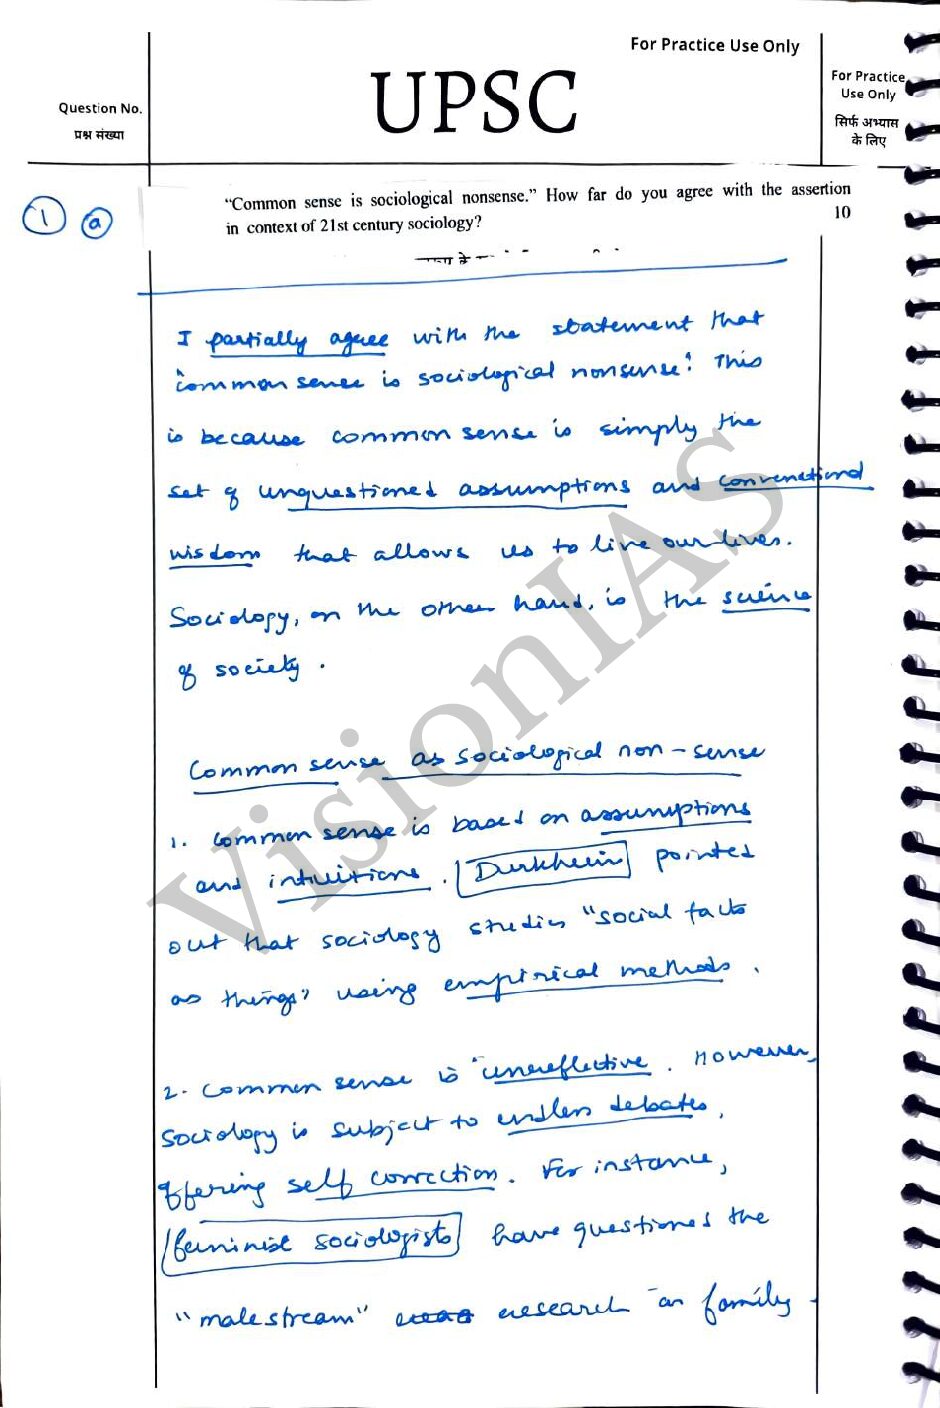 For Practice Use Only
UPSC
Question No.
प्रश्न संख्या
For Practice
Use Only
सिर्फ अभ्यास
के लिए
1 a
“Common sense is sociological nonsense.” How far do you agree with the assertion
in context of 21st century sociology? 10
I partially agree with the statement that
"common sense is sociological nonsense". This
is because common sense is simply the
set of unquestioned assumptions and convenctional
wisdom that allows us to live our lives.
Sociology, on the other hand, is the science
of society.
Common sense as sociological non-sense
1. Common sense is based on assumptions
and intuitions. Durkheim pointed
out that sociology studies "social facts
as things" using empirical methods.
2. Common sense is "unreflective. However,
sociology is subject to endless debates,
offering self correction. For instance,
feminist sociologists have questioned the
"malestream" research on family.
VisionIAS